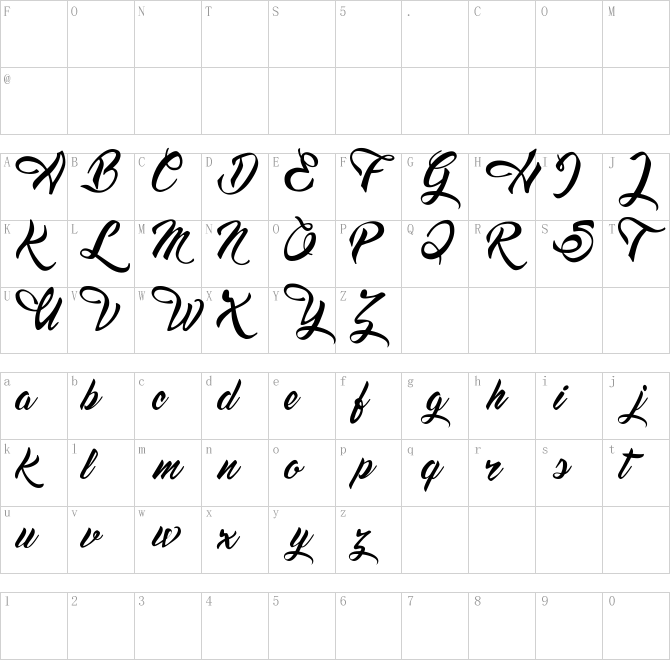 F O N T S 5 . C O M
@
A B C D E F G H I J
A B C D E F G H I J
K L M N O P Q R S T
K L M N O P Q R S T
U V W X Y Z
U V W X Y Z
a b c d e f g h i j
a b c d e f g h i j
k l m n o p q r s t
k l m n o p q r s t
u v w x y z
u v w x y z
1 2 3 4 5 6 7 8 9 0